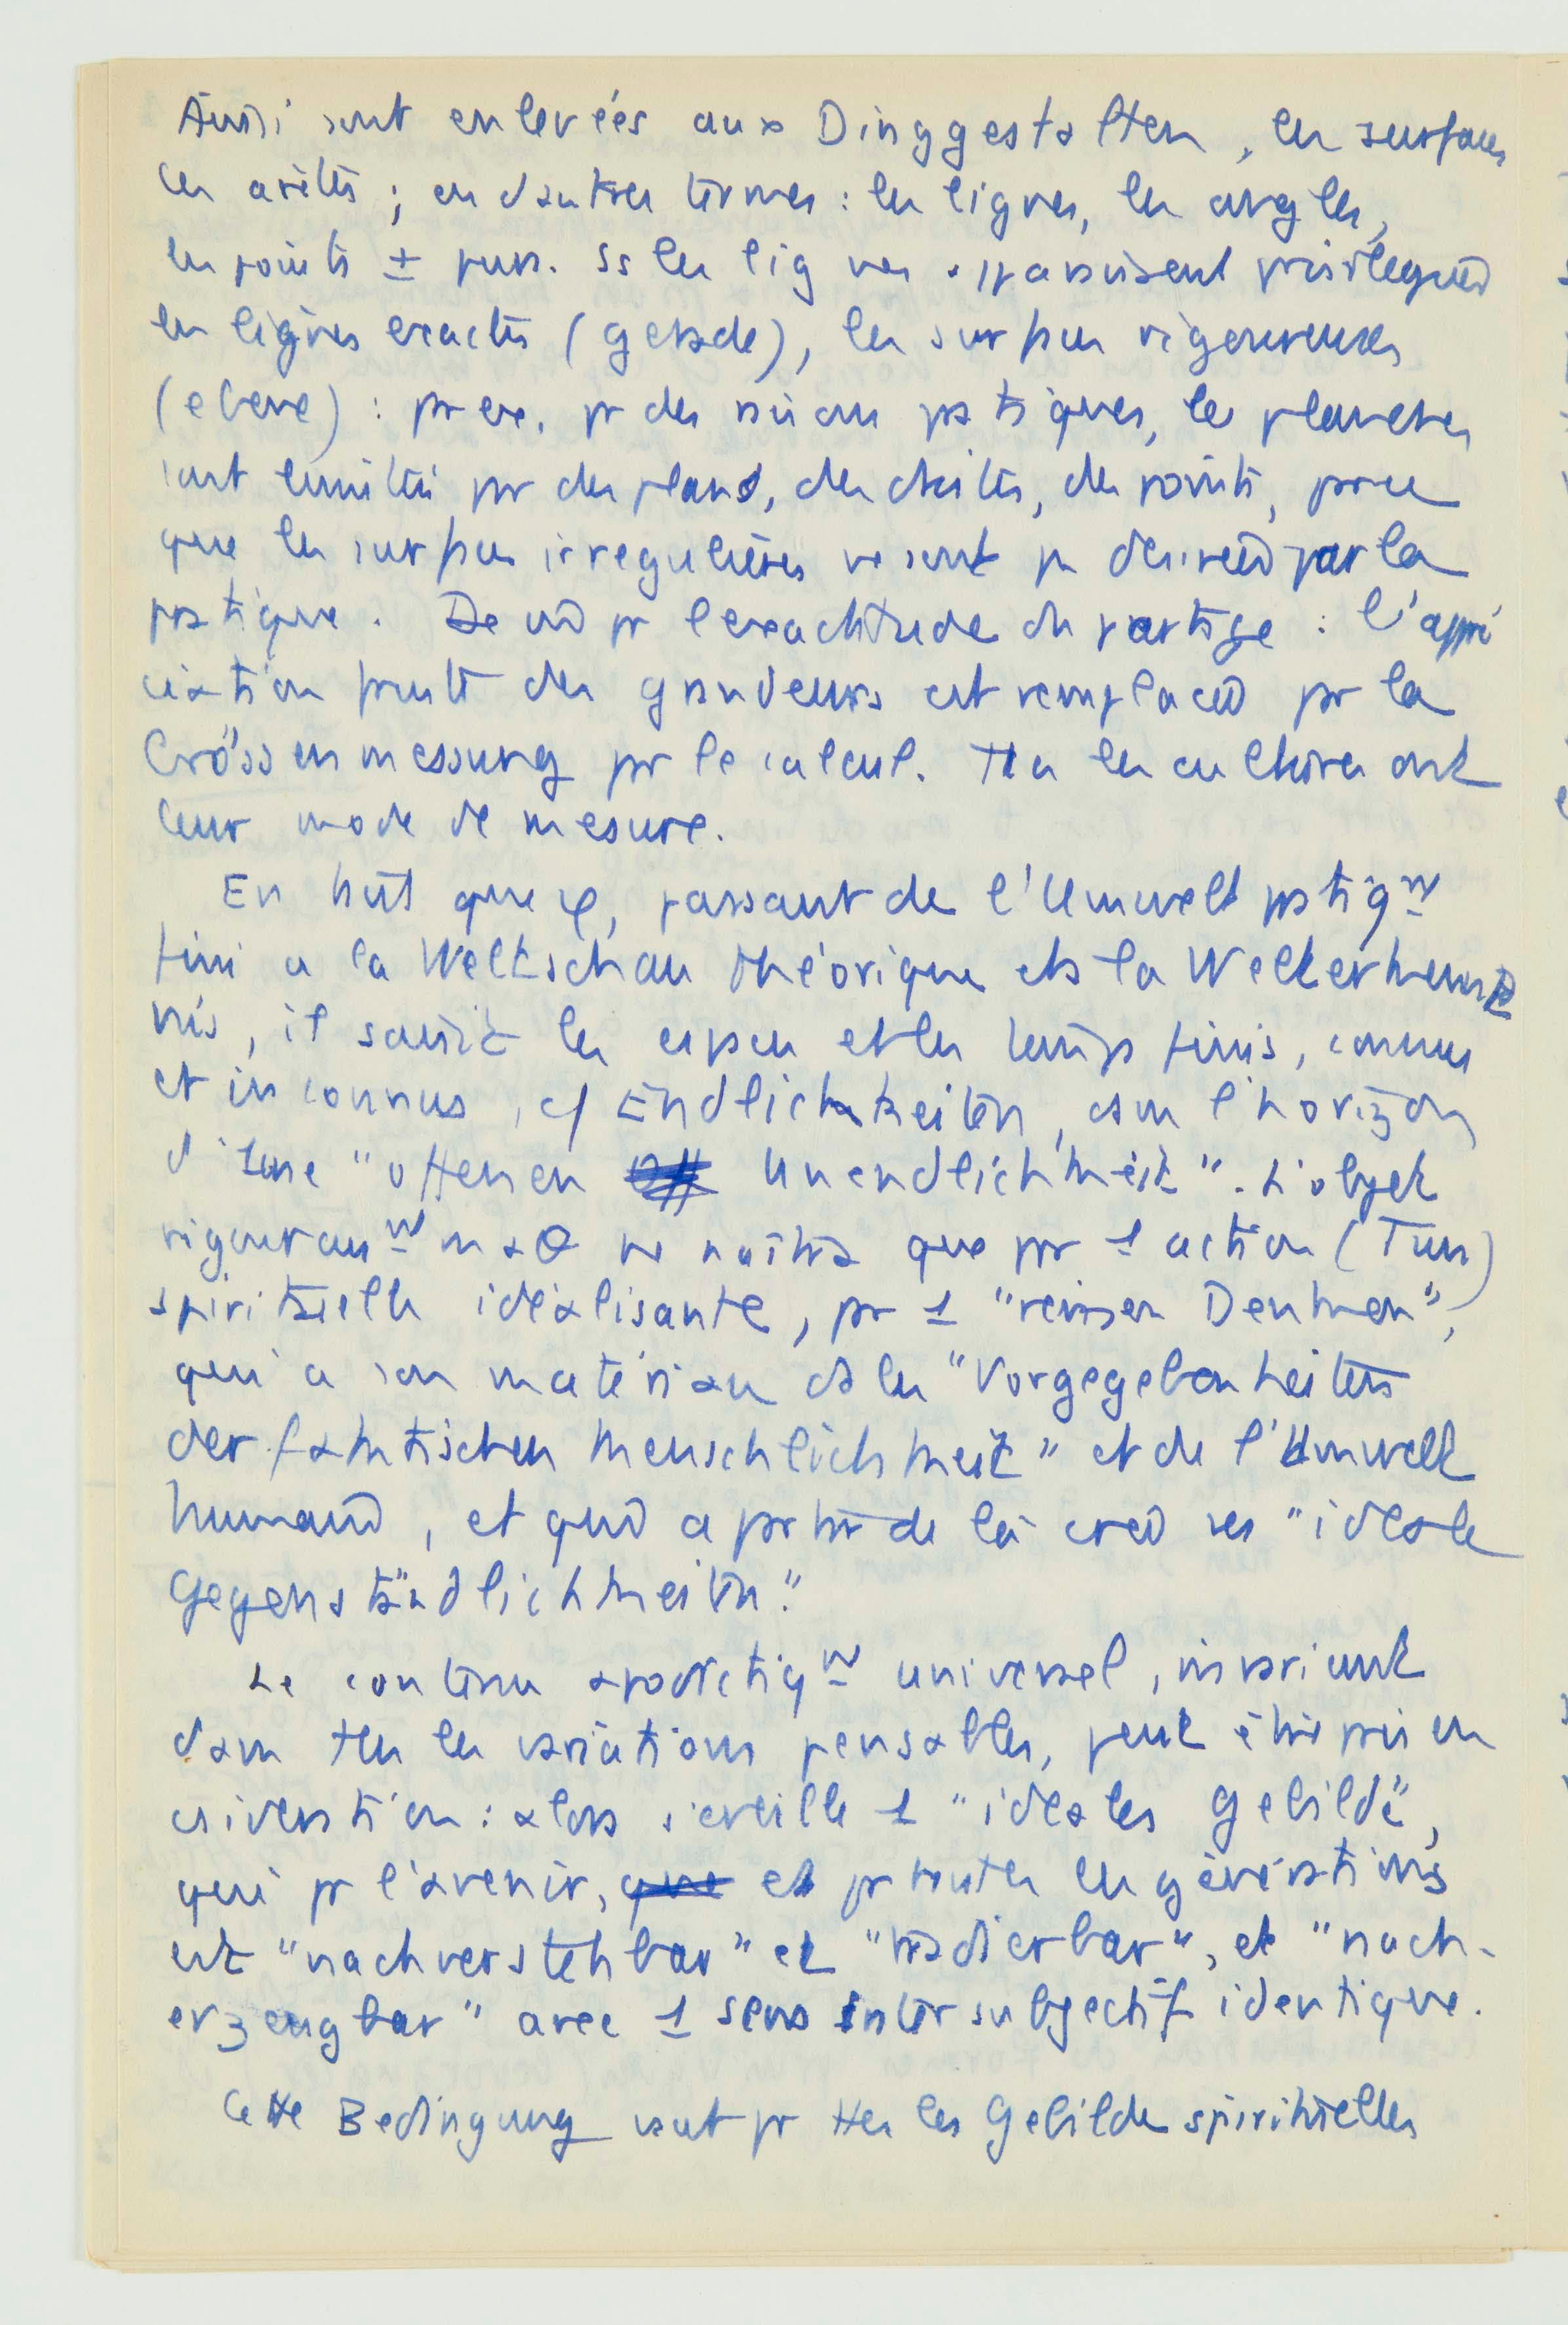 Ainsi sont enlevées aux Dinggestalten, les surfaces
les arêtes ; en d'autres termes : les lignes, les angles,
les points ± purs. Ss les lignes apparaissent privilegiées
les lignes exactes (gerade), les surfaces rigoureuses
(ebene) : pr ex. pr des raisons pratiques, les planches
sont limitées par des plans, des droites, des points, parce
que les surfaces irregulières ne sont pas désirées par la
pratique. De mê pr l'exactitude du partage : l'appré
ciation fruste des grandeurs est remplacée pr la
Grössenmessung pr le calcul. Ttes les cultures ont
leur mode de mesure.
En tant que φ, passant de l'Umwelt pratiqnt
fini a la Weltschau théorique et à la Welterkennt
nis, il saurait les espaces et les temps finis, connus
et inconnus, c/ Endlichkeiten, dans l'horizon
d'une "offenen Unendlichkeit". L'objet
rigoureusnt naitra que pr 1 action (Tun)
spirituelle idéalisante, pr 1 "reinen Denken",
qui a son matériau ds les "Vorgegebenheiten
der faktischen Menschlichkeit" et de l'Umwelt
humaine, et qui a partir de là crée ses "ideale
Gegenständlichkeiten".
Le contenu apodictiqnt universel, invariant
dans ttes les variations pensables, peut être pris en
considération : alors s'éveille 1 "ideales Gebilde",
qui pr l'avenir, que et pr toutes les générations
est "nachverstehbar" et "tradierbar", et "nach-
erzeugbar" avec 1 sens intersubjectif identique.
Cette Bedingung vaut pr ttes les Gebilde spirituelles